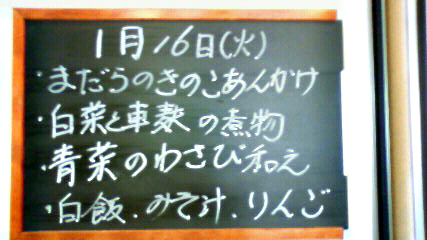 1月16日(火)
・まだらのきのこあんかけ
・白菜と車麸の煮物
・青菜のわさび和え
・白飯.みそ汁.りんご